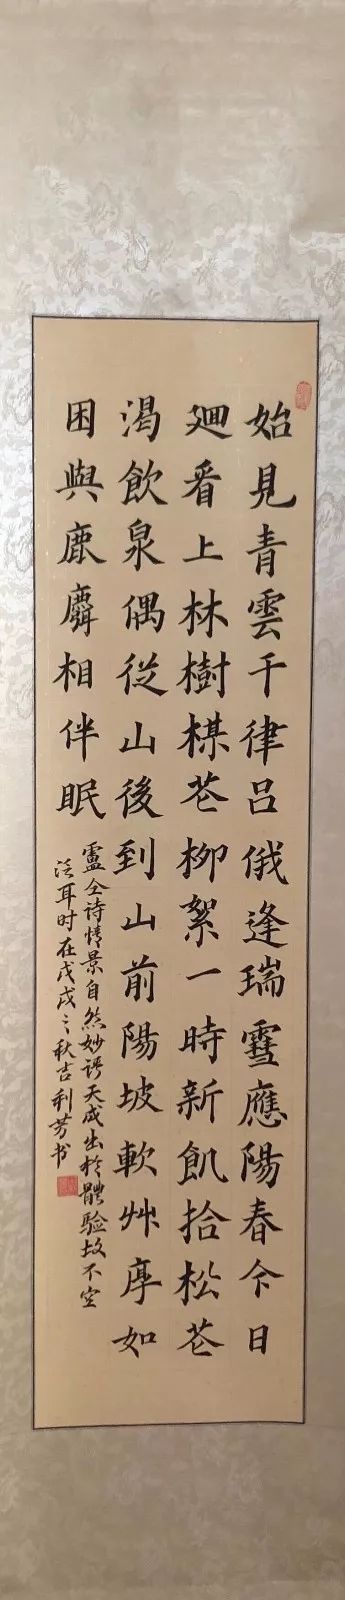 始見青雲干律呂俄逢瑞雪應陽春今日
廻看上林樹楳花柳絮一時新飢拾松花
渴飲泉偶從山後到山前陽坡軟艸厚如
困與鹿麛相伴眠
盧仝诗情景自然妙语天成出於體验故不空
泛耳时在戊戌之秋吉利芳书